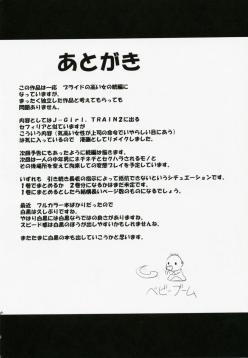 あとがき
この作品は一応 プライドの高い女の続編に
なっていますが、
まったく独立した作品と考えてもらっても
問題ありません。
内容としてはJ-Girl.TRAIN2に出る
セフィリアと似ていますが
こういう内容(気高い女性が上司の命令でいやらしい目にあう)
は好きなので 漫画としてリメイクしました。
次回予告にもあったように続編は描きます。
次回は一人の中年男にネチネチとセクハラされるモノと
その後場所を変えて拘束しての変態プレイを予定しています。
いずれも 引き続き長老の指示によって抵抗できないというシチュエーションです。
1巻でまとめるか 2巻分になるかはまだ予定です。
1巻でまとめるとしたら結構長いページ数のものになるでしょう。
最近 フルカラー本ばかりだったので
白黒は久しぶりですね。
やはり白黒には白黒ならではの良さがありますね。
スピード感は白黒のほうが出しやすいかもしれませんね。
またたまに白黒の本も出していこうかと思います。
ベビーブーム